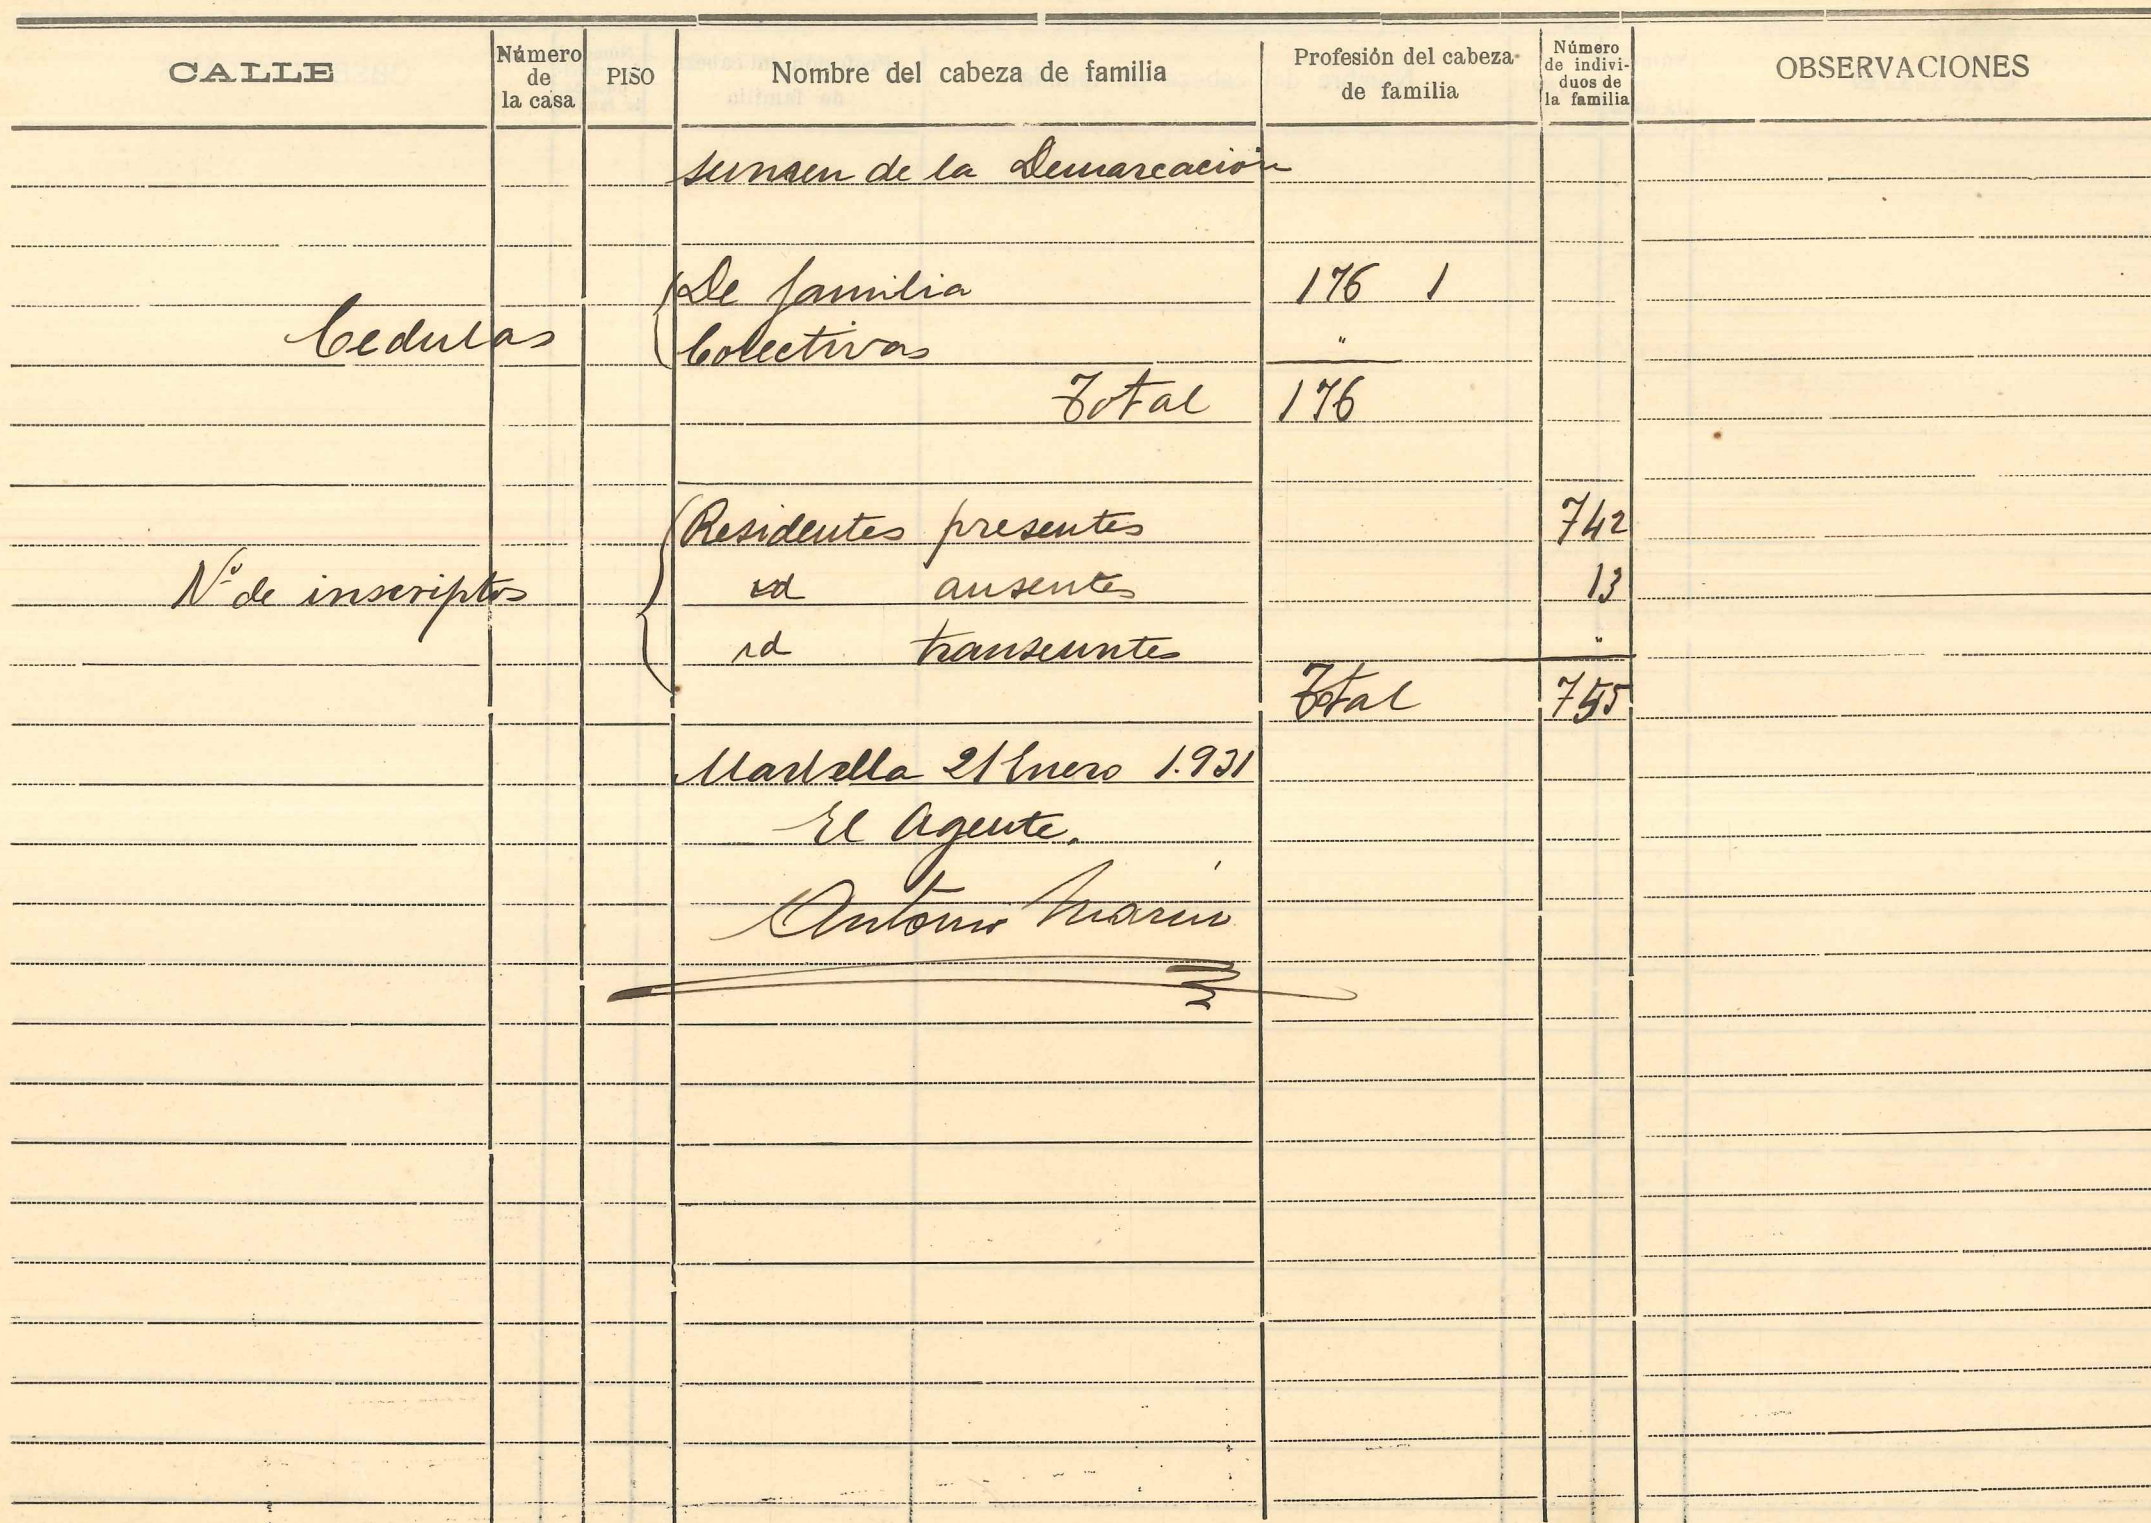 CALLE
Número de la casa
PISO
Nombre del cabeza de familia
Profesión del cabeza de familia
Número de indivi-duos de la familia
OBSERVACIONES
sumen de la Demarcación
De familia 176 1
Cedulas
Colectivas "
Total 176
Residentes presentes 742
Nº de inscriptos
id ausentes 13
id transeuntes "
Total 755
Marbella 21 Enero 1.931
El Agente.
Antonio Marín